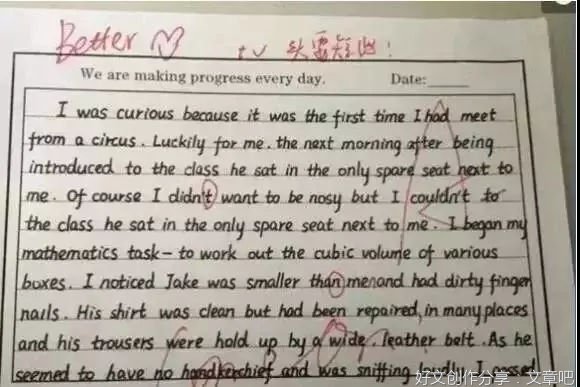 Better
头要短些!
We are making progress every day. Date:
I was curious because it was the first time I had meet
from a circus. Luckily for me. the next morning after being
introduced to the class he sat in the only spare seat next to
me. Of course I didn't want to be nosy but I couldn't to
the class he sat in the only spare seat next to me. I began my
mathematics task - to work out the cubic volume of various
boxes. I noticed Jake was smaller than me and had dirty finger
nails. His shirt was clean but had been repaired, in many places
and his trousers were hold up by a wide, leather belt. As he
seemed to have no handkerchief and was sniffing
好文创作分享:文章吧